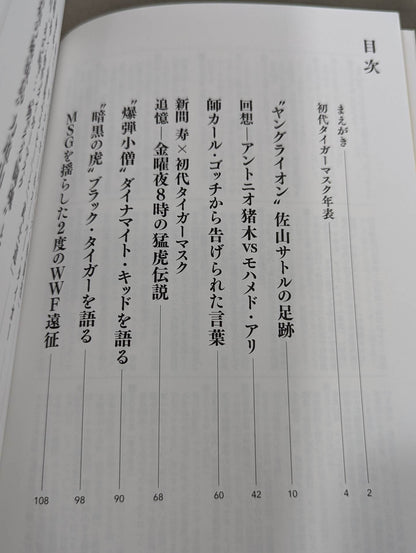 目次
まえがき 2
初代タイガーマスク年表 4
“ヤングライオン”佐山サトルの足跡 10
回想―アントニオ猪木vsモハメド・アリ 42
師カール・ゴッチから告げられた言葉 60
新間 寿×初代タイガーマスク
追憶―金曜夜8時の猛虎伝説 68
“爆弾小僧”ダイナマイト・キッドを語る 90
“暗黒の虎”ブラック・タイガーを語る 98
MSGを揺らした2度のWWF遠征 108